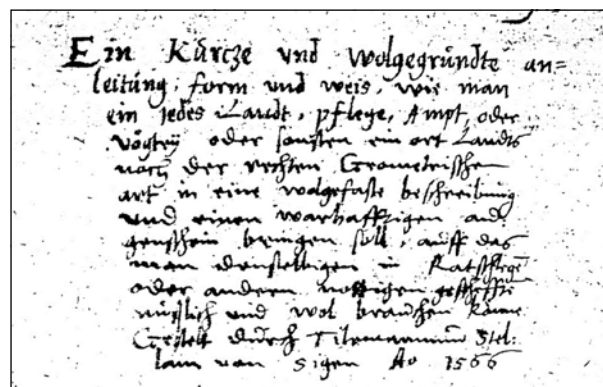 Ein Kürcze vnd wolgegründte an=
leitüng, form vnd weis, wie man
ein Jedes Landt, pflege, Ampt, oder
vögtey oder sonsten ein ort Landts
nach der rechten Geometrischen
art in eine wolgefaste beschreibüng
vnd einen warhafftigen aug
genschein bringen soll, auff das
man denselbigen in Ratspflege
oder andern nottigen geschefften
nützlich vnd wol braüchen könne
Gestelt dürch Tilemannüm Stel:
lam von Sigen Ao 1566